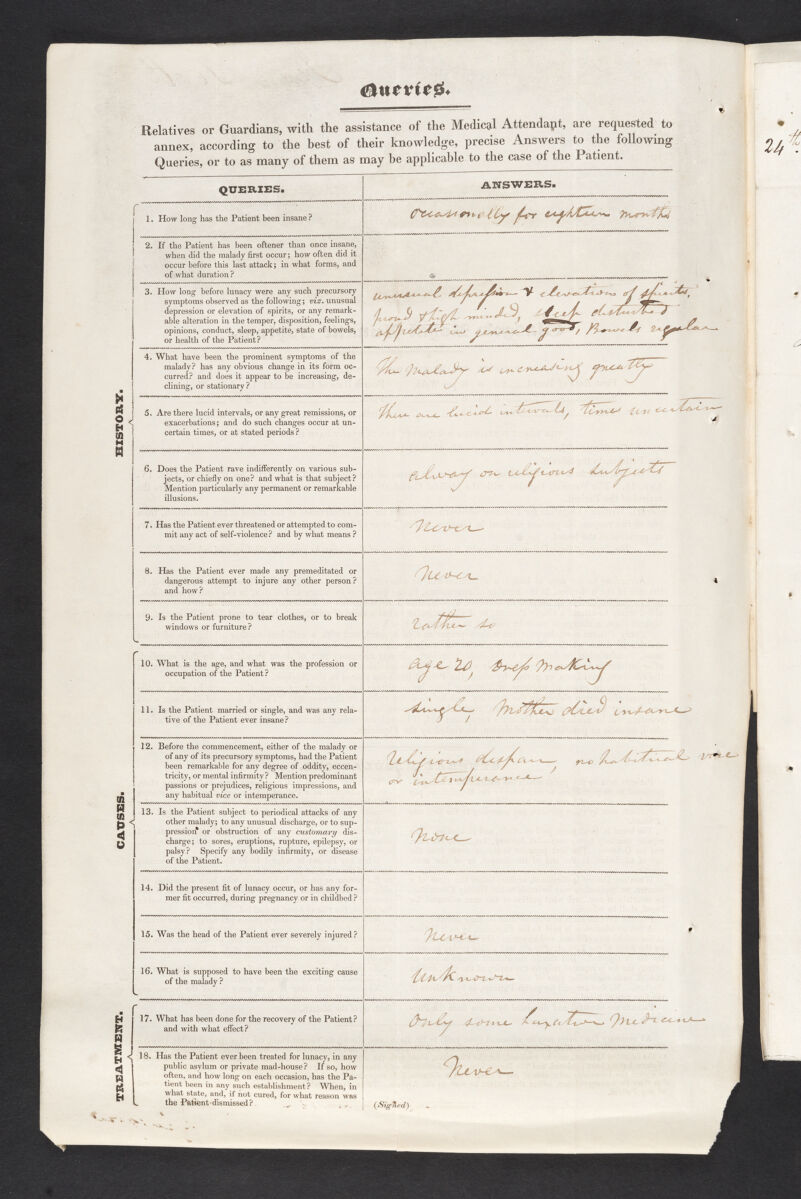 Queries.
Relatives or Guardians, with the assistance of the Medical Attendant, are requested to
annex, according to the best of their knowledge, precise Answers to the following
Queries, or to as many of them as may be applicable to the case of the Patient.
QUERIES.
ANSWERS.
HISTORY.
1. How long has the Patient been insane?
occasionally for eighteen months
2. If the Patient has been oftener than once insane,
when did the malady first occur; how often did it
occur before this last attack; in what forms, and
of what duration?
3. How long before lunacy were any such precursory
symptoms observed as the following; viz. unusual
depression or elevation of spirits, or any remark-
able alteration in the temper, disposition, feelings,
opinions, conduct, sleep, appetite, state of bowels,
or health of the Patient?
unusual depression & elevation of spirits,
proud & high minded, sleep disturbed
appetite in general good, Bowels regular
4. What have been the prominent symptoms of the
malady? has any obvious change in its form oc-
curred? and does it appear to be increasing, de-
clining, or stationary?
The malady is increasing greatly
5. Are there lucid intervals, or any great remissions, or
exacerbations; and do such changes occur at un-
certain times, or at stated periods?
There are lucid intervals, times uncertain
6. Does the Patient rave indifferently on various sub-
jects, or chiefly on one? and what is that subject?
Mention particularly any permanent or remarkable
illusions.
alway on religious subjects
7. Has the Patient ever threatened or attempted to com-
mit any act of self-violence? and by what means?
Never
8. Has the Patient ever made any premeditated or
dangerous attempt to injure any other person?
and how?
Never
9. Is the Patient prone to tear clothes, or to break
windows or furniture?
rather so
CAUSES.
10. What is the age, and what was the profession or
occupation of the Patient?
age 20, Dress Making
11. Is the Patient married or single, and was any rela-
tive of the Patient ever insane?
single, Mother died insane
12. Before the commencement, either of the malady or
of any of its precursory symptoms, had the Patient
been remarkable for any degree of oddity, eccen-
tricity, or mental infirmity? Mention predominant
passions or prejudices, religious impressions, and
any habitual vice or intemperance.
religious despair, no habitual vice
or intemperance
13. Is the Patient subject to periodical attacks of any
other malady; to any unusual discharge, or to sup-
pression or obstruction of any customary dis-
charge; to sores, eruptions, rupture, epilepsy, or
palsy? Specify any bodily infirmity, or disease
of the Patient.
None
14. Did the present fit of lunacy occur, or has any for-
mer fit occurred, during pregnancy or in childbed?
15. Was the head of the Patient ever severely injured?
Never
16. What is supposed to have been the exciting cause
of the malady?
Unknown
TREATMENT.
17. What has been done for the recovery of the Patient?
and with what effect?
Only some laxative Medicine
18. Has the Patient ever been treated for lunacy, in any
public asylum or private mad-house? If so, how
often, and how long on each occasion, has the Pa-
tient been in any such establishment? When, in
what state, and, if not cured, for what reason was
the Patient dismissed?
Never
(Signed)
24th